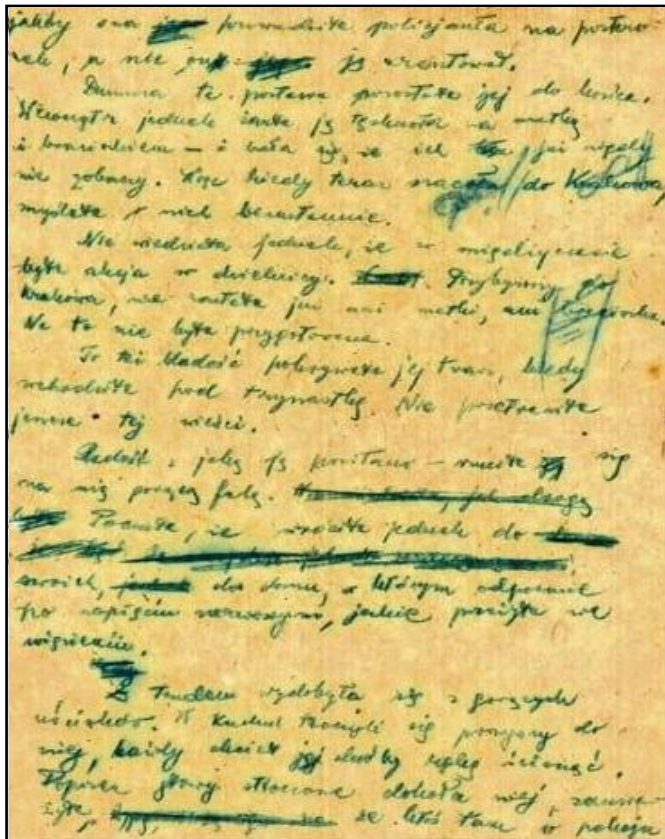 jakby ona prowadziła policjanta na postero
nek, a nie on ją aresztował.
Dumna ta postawa pozostała jej do końca.
Wewnątrz jednak żarła ją tęsknota za matką
i braciszkiem — i bała się, że ich już nigdy
nie zobaczy. kiedy teraz do Krakowa,
myślała o nich bezustannie.
Nie wiedziała jednak, że w międzyczasie
była akcja w dzielnicy. Przybywszy do
Krakowa, nie zastała już ani matki, ani braciszka.
Na to nie była przygotowana.
To też bladość pokrywała jej twarz, kiedy
wchodziła pod trzynastkę. Nie przetrawiła
jeszcze tej wieści.
Radość, z jaką ją powitano — rzuciła się
na nią gorącą falą.
Poczuła, że wróciła jednak do
swoich, do domu, w którym odpocznie
po napięciu nerwowym, jakie przeżyła we
więzieniu.
Z trudem wydobyła się z gorących
uścisków. W kuchni tłoczyli się wszyscy do
niej, każdy chciał jej dłoń uścisnąć.
Poprzez głowy stłoczone dokoła niej, zauwa-
żyła, że ktoś tam w pokoju